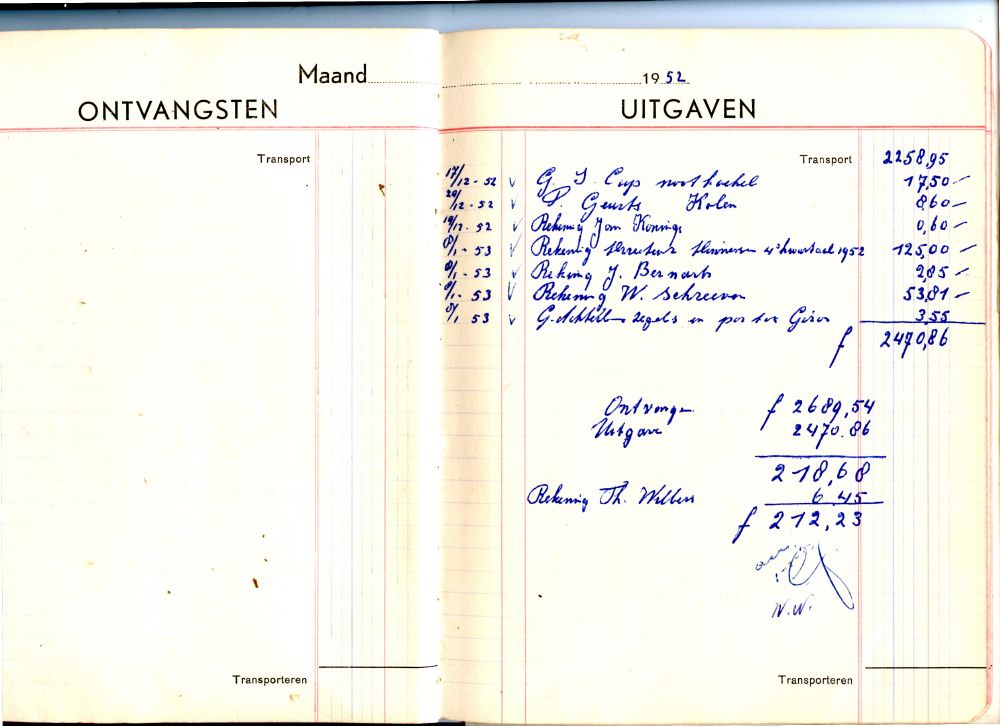 Maand
ONTVANGSTEN
Transport
Transporteren
1952
UITGAVEN
Transport 2258,95
17/12-52 v G. J. Cup 17,50 -
20/12-52 v P. Geurts Kolen 8,60 -
v Rekening Jan Konings 0,60 -
8/1-53 v Rekening 4e kwartaal 1952 125,00 -
8/1-53 v Rekening J. Bernarts 2,85 -
8/1-53 v Rekening W. Schreeven 53,81 -
8/1 53 v zegels en porto Giro 3,55
f 2470,86
Ontvangen f 2689,54
Uitgave 2470.86
218,68
Rekening Th. Wilbers 6.45
f 212,23
W.W.
Transporteren